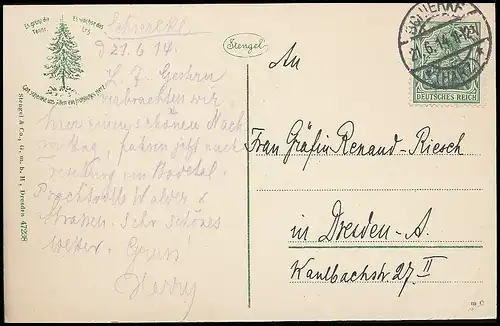 Es grüne die Tanne,
Es wachse das Erz,
Gott schenke uns Allen ein fröhliches Herz!
Stengel & Co., G. m. b. H., Dresden 47238
Schierke
d 21.6.14.
L. F. Gestern
verbrachten wir
hier einen schönen Nach
mittag, fahren jetzt nach
Treseburg im Bodetal.
Prachtvolle Wälder &
Strassen. Sehr schönes
Wetter. Gruss
Harry
Stengel
SCHIERKE
21.6.14.
(HARZ)
DEUTSCHES REICH
An
Frau Gräfin Renaud-Riesch
in Dresden-A.
Kaulbachstr. 27 II